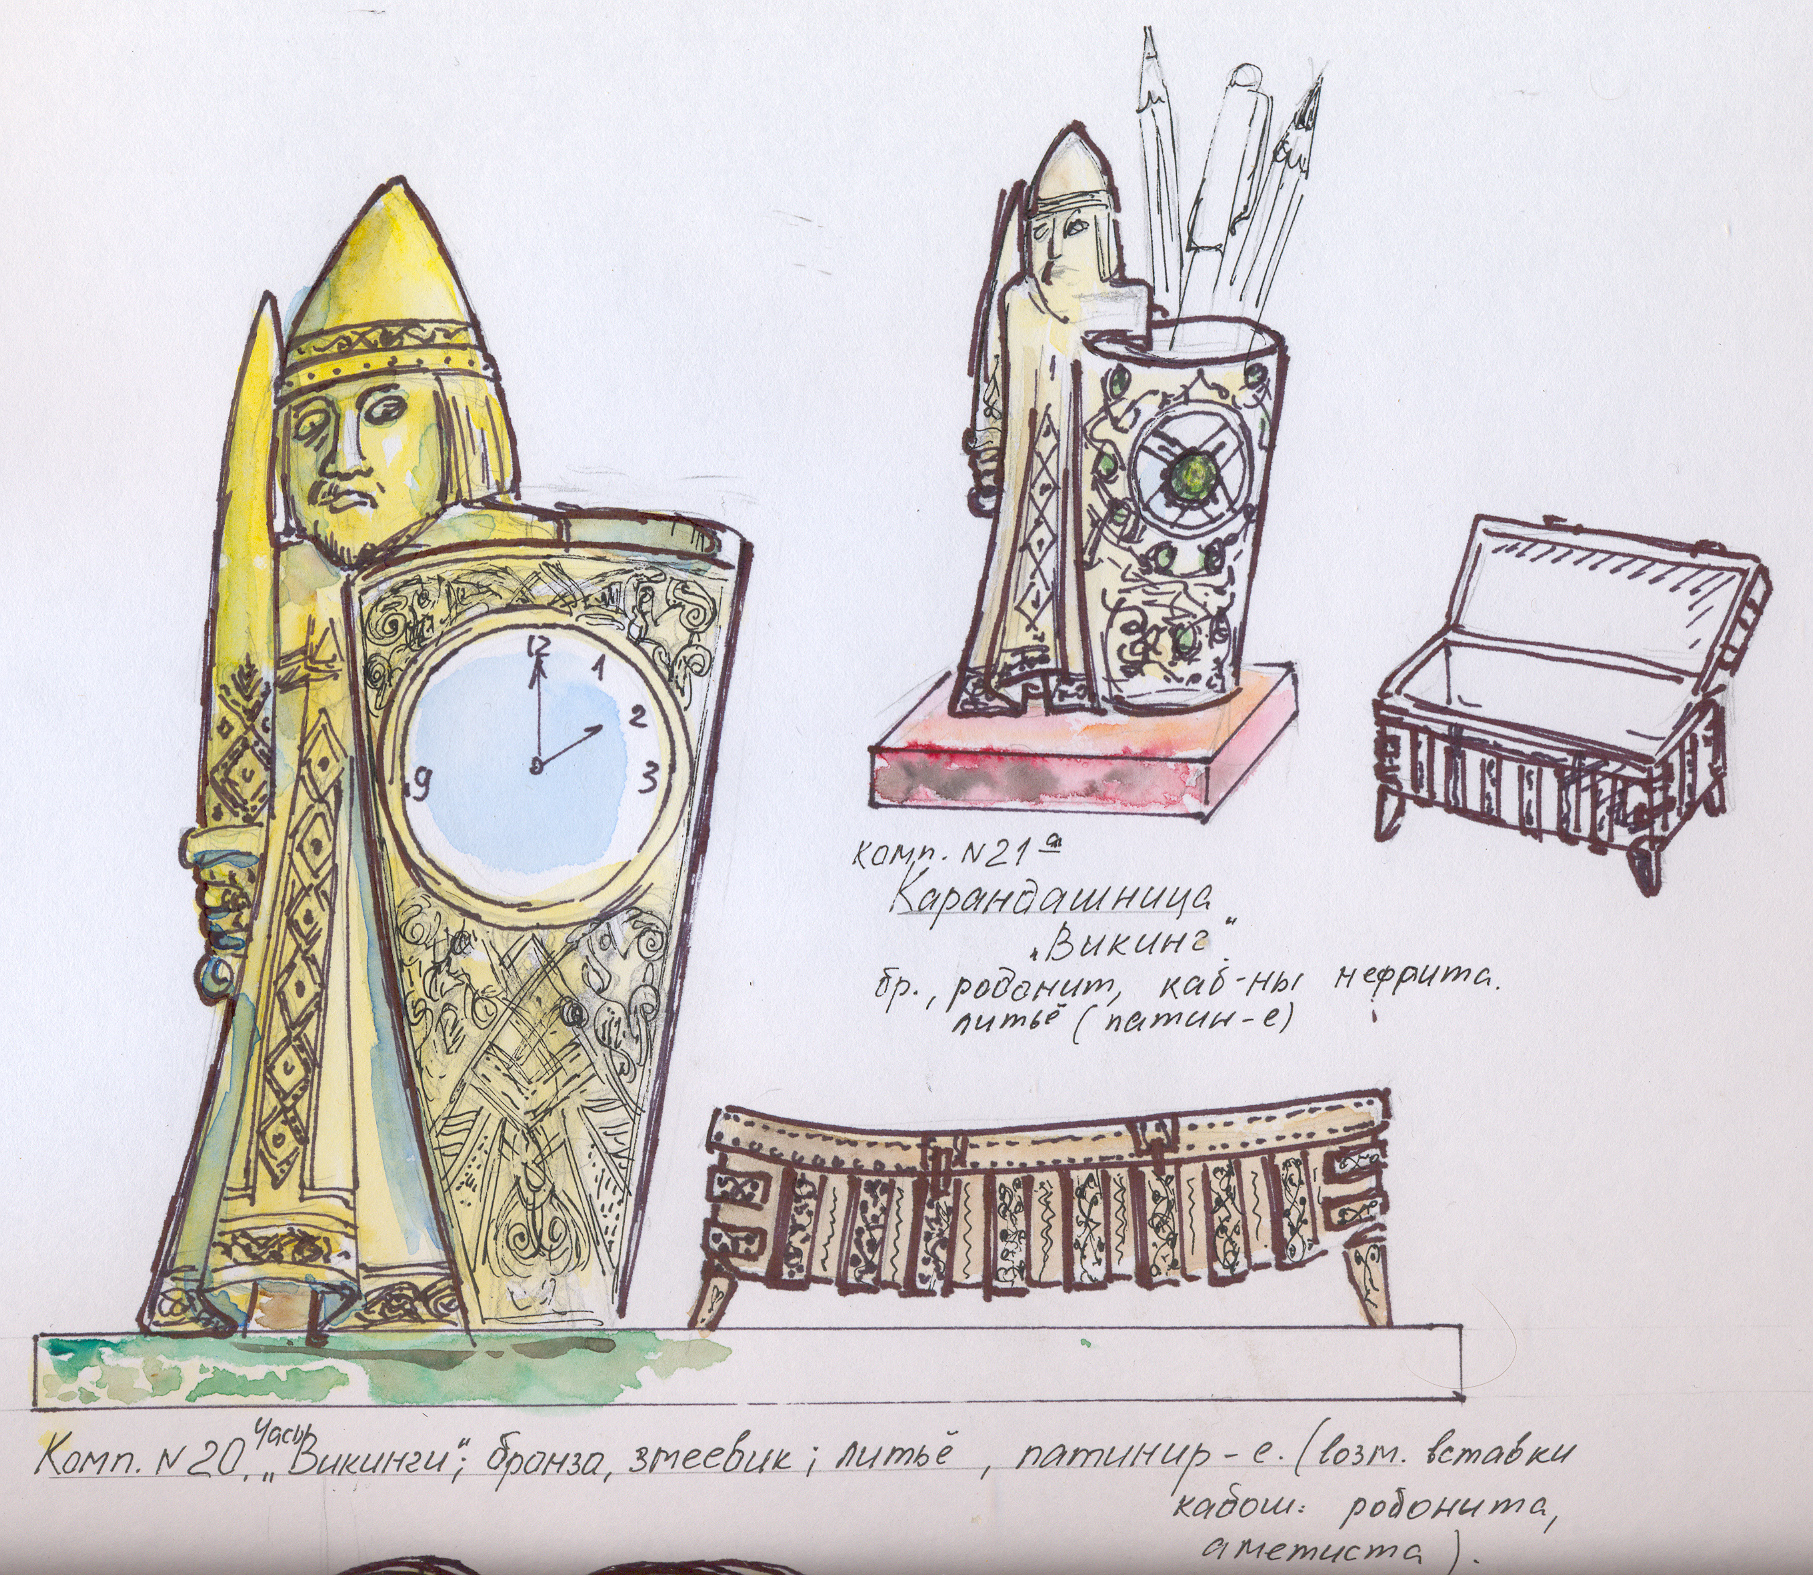 12
1
2
3
9
комп. N21 а
Карандашница
„Викинг"
бр., родонит, каб-ны нефрита.
литьё (патин-е)
Часы
Комп. N 20. „Викинги"; бронза, змеевик; литьё, патинир-е. (возм. вставки
кабош: родонита,
аметиста).